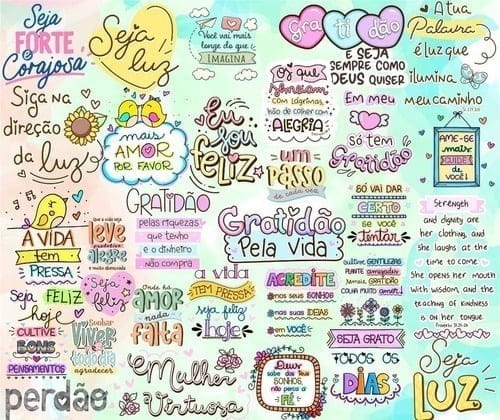 Seja
FORTE
e
Corajosa
Seja
luz
Você vai mais
longe do que
IMAGINA
Gra ti dão
E SEJA
SEMPRE COMO
DEUS QUISER
A tua
Palavra
é luz que
ilumina
meu caminho
Siga na
direção
da luz
mais
AMOR
POR FAVOR
Eu
sou
FELIZ
Os que
Semeiam
com lágrimas
hão de colher com
ALEGRIA
um
PASSO
de cada vez
Em meu
só tem
Gratidão
AME-SE
mais
CUIDE
de você!
A VIDA
tem
PRESSA
Que a vida seja
leve
produtiva
alegre
GRATIDÃO
pelas riquezas
que tenho
e o dinheiro
não compra
Gratidão
Pela vida
SÓ VAI DAR
CERTO
se você
tentar
STRENGTH
and dignity are
her clothing, and
she laughs at the
time to come
She opens her mouth
with wisdom, and the
teaching of kindness
is on her tongue.
Proverbs 31:25-26
Seja FELIZ
hoje
Seja
feliz
Onde há
AMOR
nada
falta
a vida
TEM PRESSA
seja feliz
hoje
ACREDITE
nos seus SONHOS
nas suas IDEIAS
em VOCÊ
cultive GENTILEZAS
PLANTE amizades
semeie GRATIDÃO
COLHA MUITO amor!
SEJA GRATO
TODOS OS
DIAS
CULTIVE
BONS
PENSAMENTOS
Sonhar
VIVER
todo dia
agradecer
Mulher
Virtuosa
Deus
sabe dos teus
SONHOS,
não perca a
FÉ
Seja
LUZ
perdão